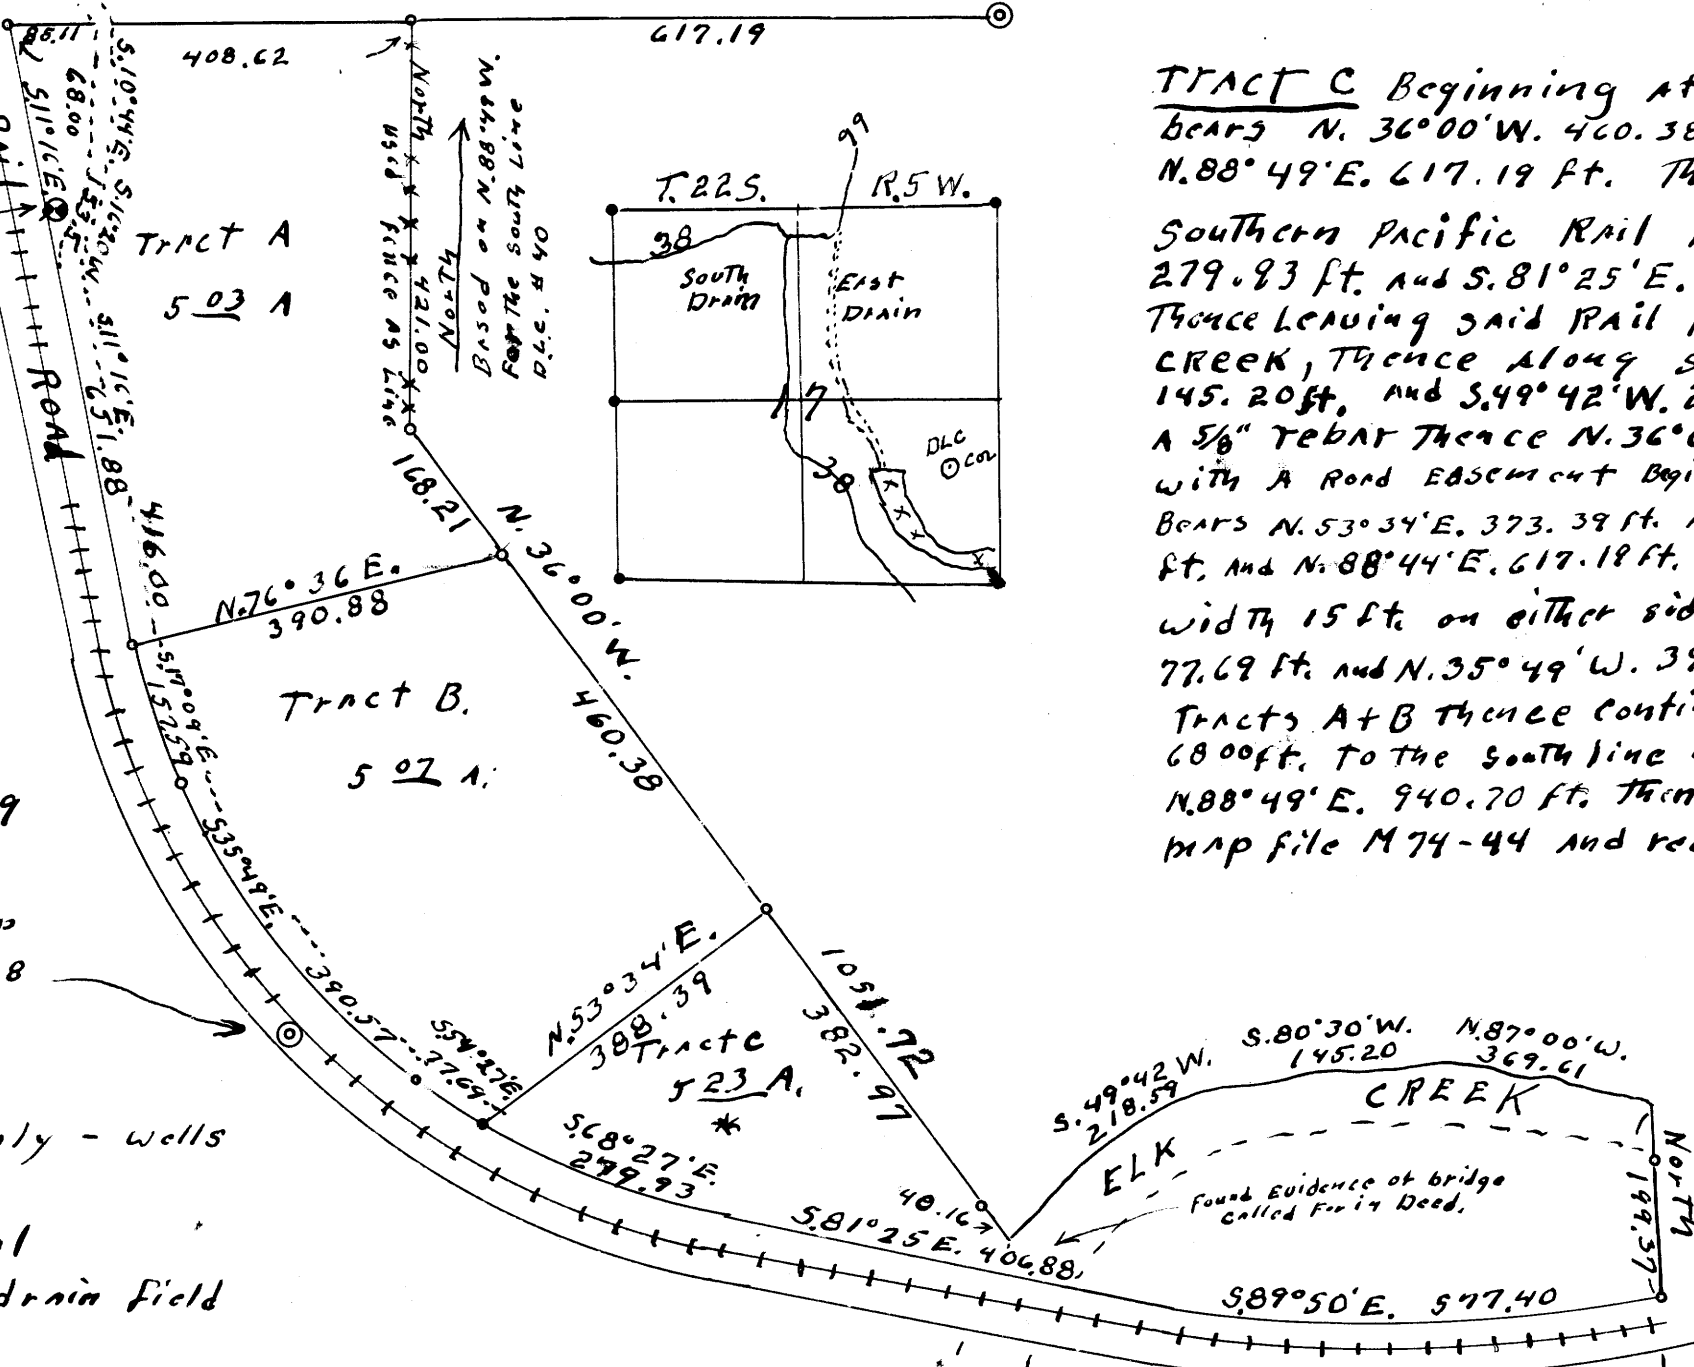 85.11
408.62
617.19
S.10°44'E.
68.00
S.16°20'W.
153.5
S.11°16'E.
S.11°16'E.
651.88
ROAD
Tract A
5 03 A
North
421.00
Used fence as Line
North
Based on N.88°49'W.
For the south Line
D.L.C. # 40
T.22S. R.5W.
99
38
South
Drain
East
Drain
17
38
DLC
COR
168.21
N. 36°00' W.
416.00
N.76°36 E.
390.88
S.17°09'E.
157.59
Tract B.
5 07 A.
460.38
S.35°49'E.
390.57
S.54°27'E.
77.69
N.53°34'E.
388.39
Tract C
5 23 A.
*
1051.72
382.97
S.68°27'E.
279.93
40.16
S.81°25 E. 406.88
S.49°42 W.
218.59
S.80°30'W.
145.20
N.87°00'W.
369.61
ELK CREEK
Found Evidence of bridge
called For in Deed.
North
199.37
S.89°50'E. 577.40
9
8
ly - wells
drain field
TRACT C Beginning At
bears N. 36°00'W. 460.38
N.88°49'E. 617.19 ft. Th
Southern Pacific Rail
279.93 ft. and S.81°25'E.
Thence Leaving said Rail
CREEK, Thence Along S
145.20ft. and S.49°42'W. 2
A 5/8" rebar Thence N.36°
with A Road Easement Begi
Bears N.53°34'E. 373.39 ft.
ft. and N.88°44'E. 617.19 ft.
width 15 ft. on either sid
77.69 ft. and N.35°49'W. 39
Tracts A+B Thence Conti
68 00ft. To the South line
N.88°49'E. 940.70 ft. Then
map file M 74-44 and rec